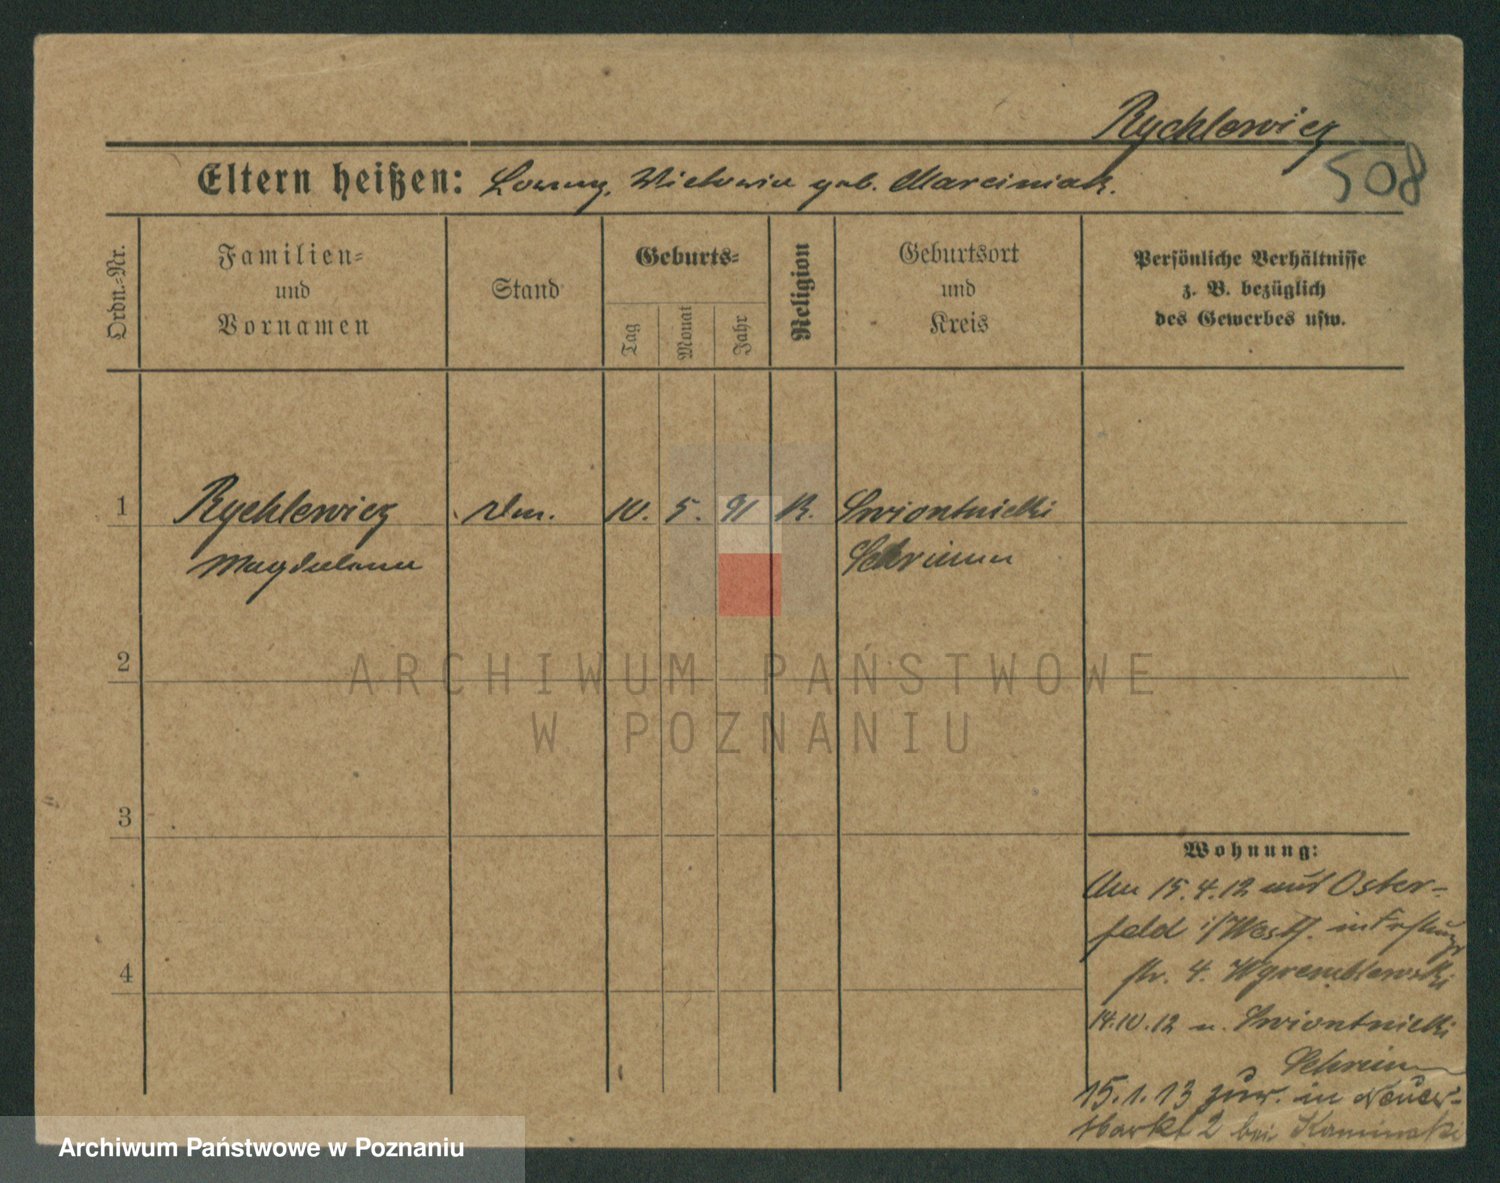 Rychlewicz
508
Eltern heißen: Lorenz, Victoria geb. Marciniak.
Ordn.-Nr.
Familien-
und
Vornamen
Stand
Geburts-
Tag
Monat
Jahr
Religion
Geburtsort
und
Kreis
Persönliche Verhältnisse
z. B. bezüglich
des Gewerbes usw.
1
Rychlewicz
10. 5. 91 K. Swiontnicki
Magdalena
Schrimm
2
3
4
Wohnung:
Am 15.4.12 auf Oster-
feld i/Westf. in
str. 4.
14.10.12 n. Swiontnicki
Schrimm
15.1.13 zur. in Neuer-
Markt 2 bei Kaminski
ARCHIWUM PAŃSTWOWE
W POZNANIU
Archiwum Państwowe w Poznaniu